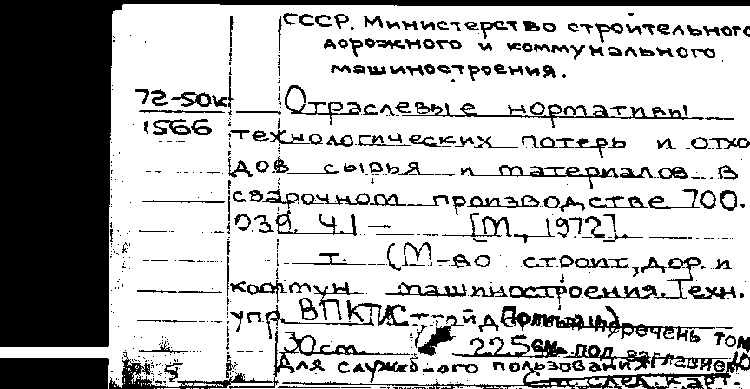 СССР. Министерство строительного
дорожного и коммунального
машиностроения.
72-50к
1566
Отраслевые нормативы
технологических потерь и отхо
дов сырья и материалов в
сварочном производстве 700.
039. Ч.1 — [М., 1972].
т. (М-во строит, дор. и
коммун машиностроения. Техн.
упр. ВПКТИС
Полный перечень том
30 см. 225 см. под заглавием
Для служебного пользования
См. след. карт